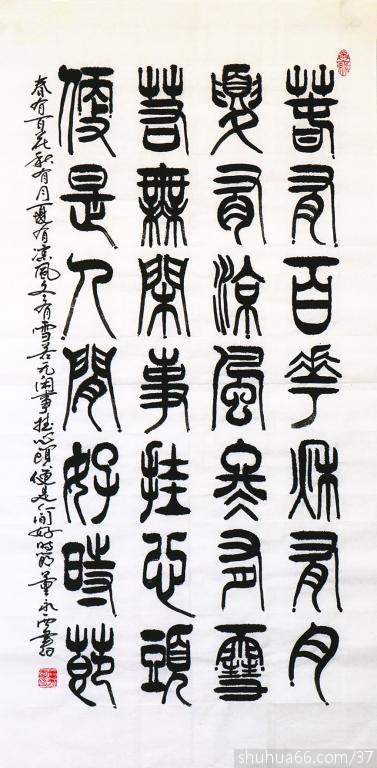 春有百花秋有月
夏有涼風冬有雪
若無閑事挂心頭
便是人間好時節
春有百花秋有月夏有凉風冬有雪若无闲事挂心頭便是人间好時節 董永書
shuhua66.com/37